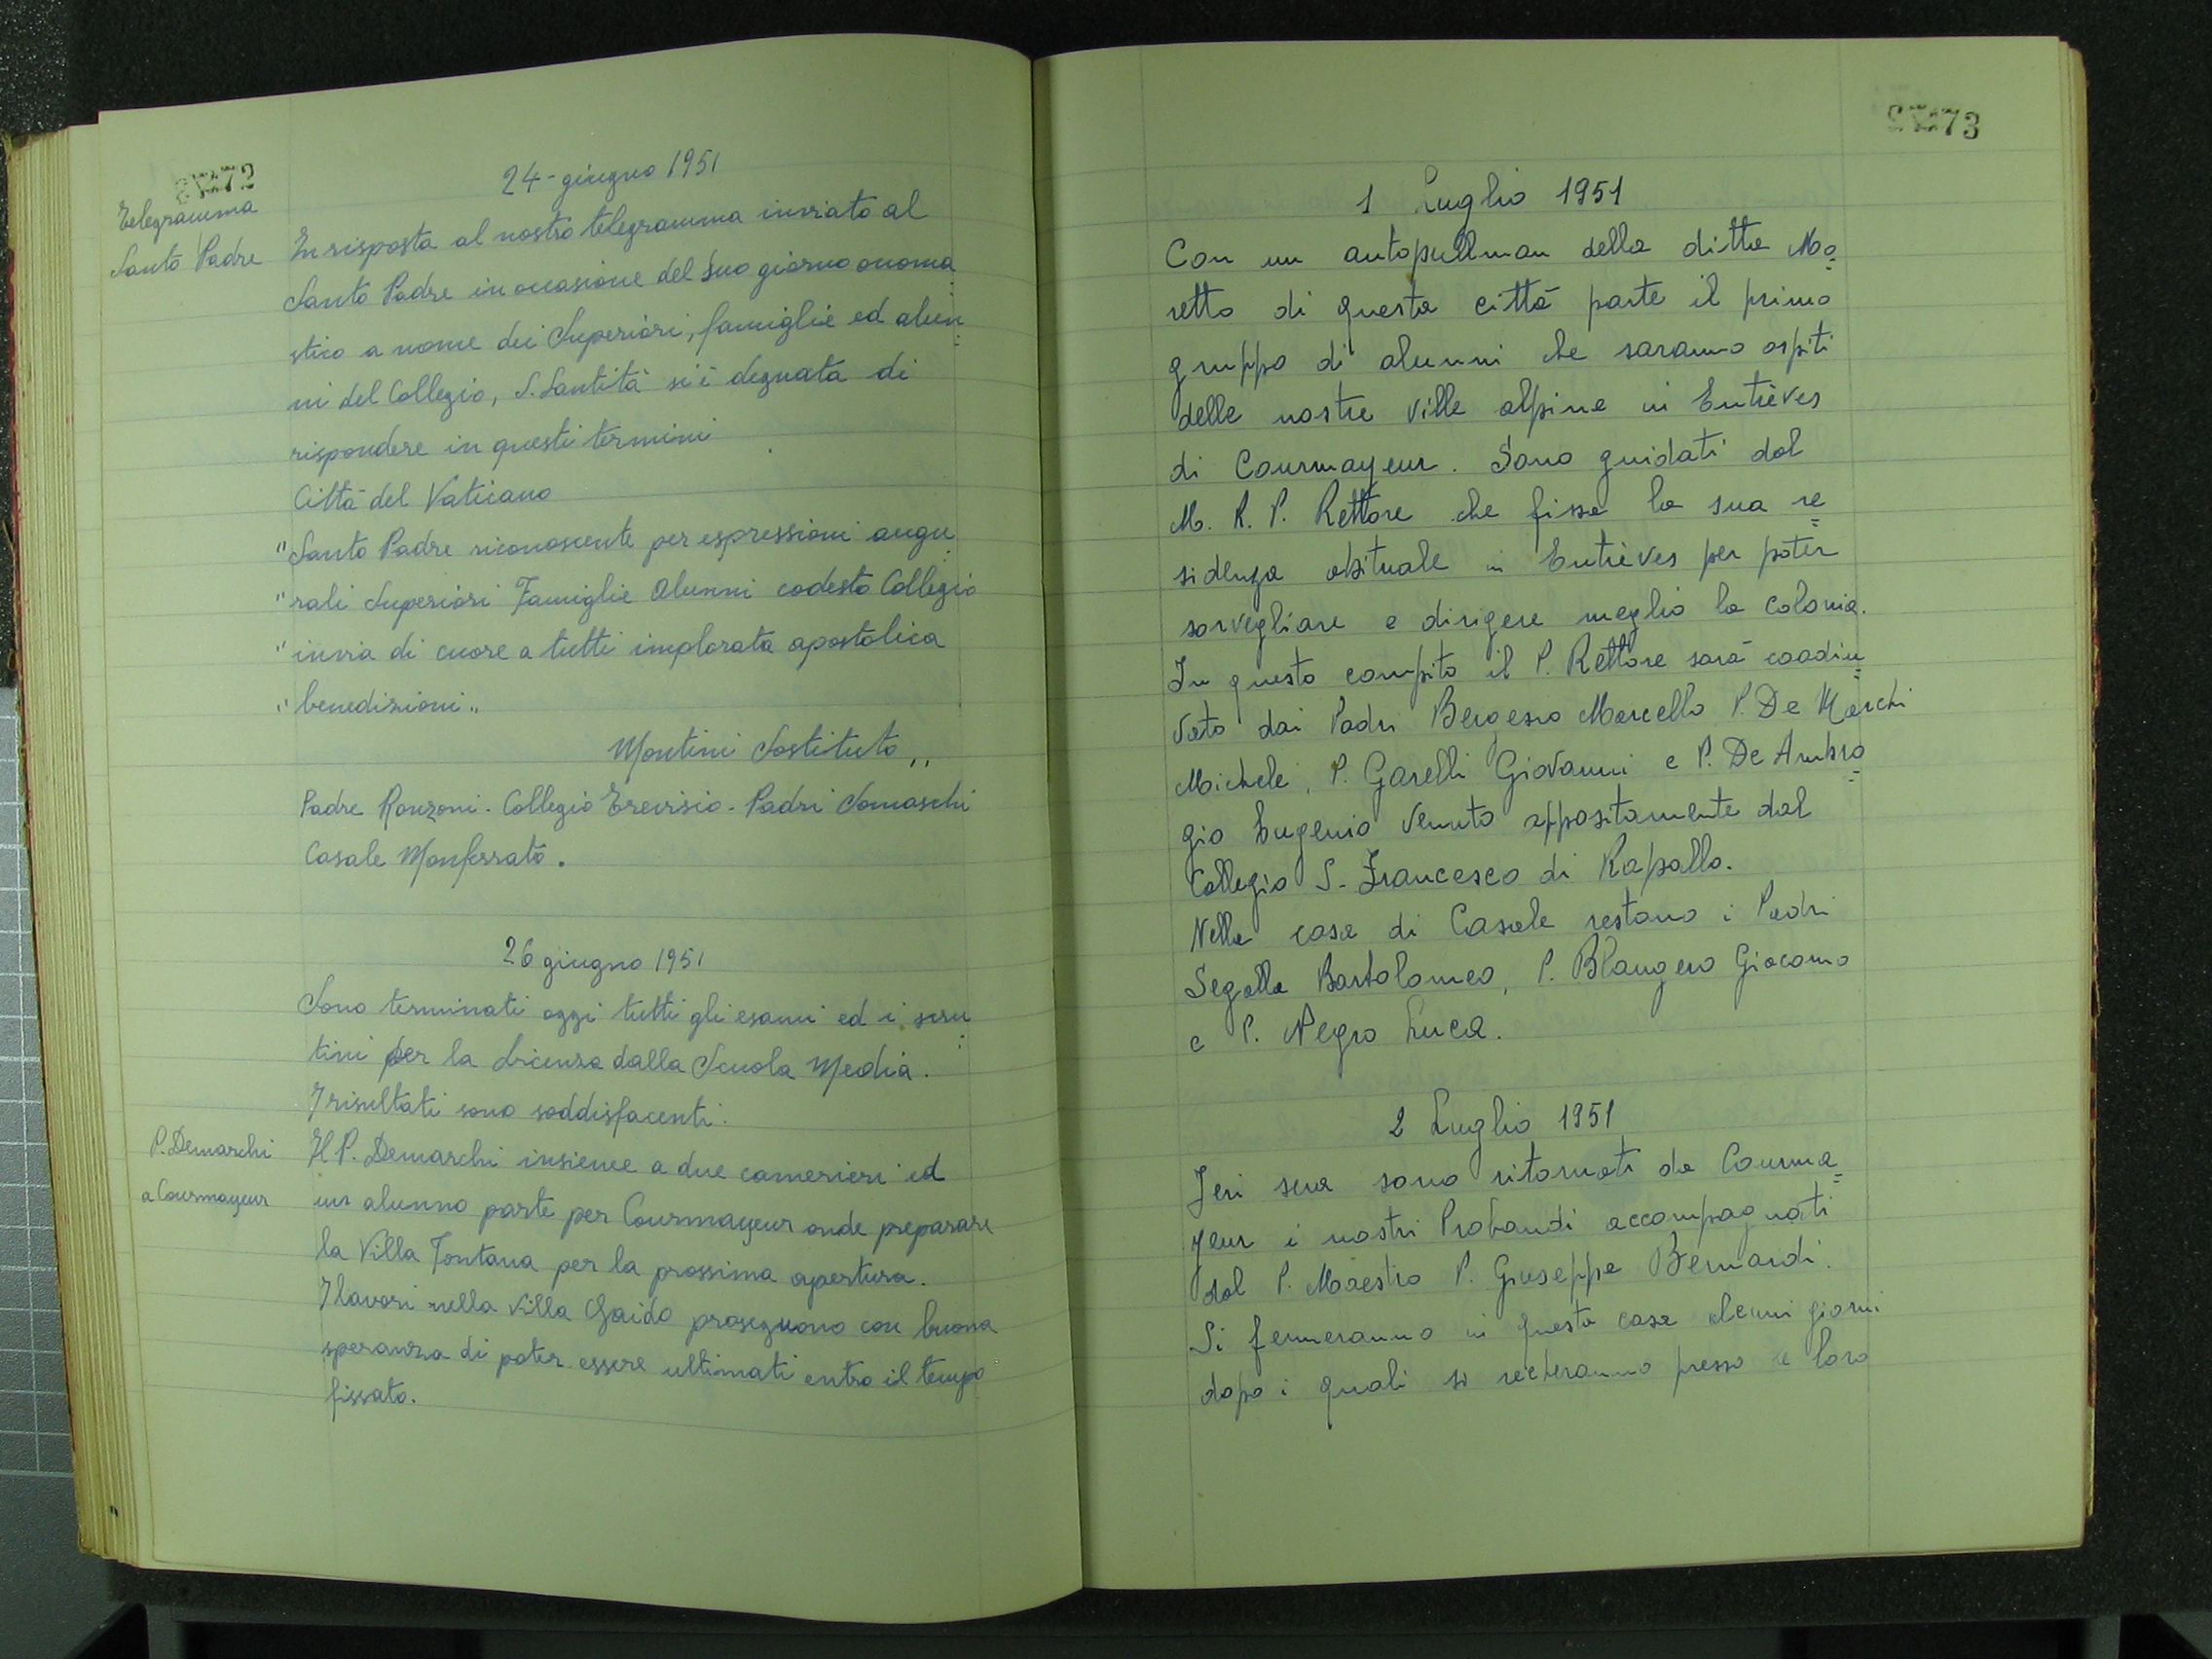 72
Telegramma
Santo Padre
24-giugno 1951
In risposta al nostro telegramma inviato al
Santo Padre in occasione del Suo giorno onoma=
stico a nome dei Superiori, famiglie ed alun=
ni del Collegio, S. Santità si è degnata di
rispondere in questi termini
Città del Vaticano
"Santo Padre riconoscente per espressioni augu=
"rali Superiori Famiglie Alunni codesto Collegio
"invia di cuore a tutti implorata apostolica
"benedizioni"
Montini Sostituto"
Padre Ronzoni - Collegio Trevisio - Padri Somaschi
Casale Monferrato.
26 giugno 1951
Sono terminati oggi tutti gli esami ed i scru=
tini per la Licenza dalla Scuola Media.
I risultati sono soddisfacenti.
P. Demarchi
a Courmayeur
Il P. Demarchi insieme a due camerieri ed
un alunno parte per Courmayeur onde preparare
la Villa Fontana per la prossima apertura.
I lavori nella Villa Gaido proseguono con buona
speranza di poter essere ultimati entro il tempo
fissato.
73
1 Luglio 1951
Con un autopullman della ditta Mo=
retto di questa città parte il primo
gruppo di alunni che saranno ospiti
delle nostre ville alpine in Entrèves
di Courmayeur. Sono guidati dal
M. R. P. Rettore che fissa la sua re=
sidenza abituale in Entrèves per poter
sorvegliare e dirigere meglio la colonia.
In questo compito il P. Rettore sarà coadiu=
vato dai Padri Bergesio Marcello P. De Marchi
Michele, P. Garelli Giovanni e P. De Ambro=
gio Eugenio venuto appositamente dal
Collegio S. Francesco di Rapallo.
Nella casa di Casale restano i Padri
Segalla Bartolomeo, P. Blangero Giacomo
e P. Negro Luca.
2 Luglio 1951
Jeri sera sono ritornati da Courma=
yeur i nostri Probandi accompagnati
dal P. Maestro P. Giuseppe Bernardi.
Si fermeranno in questa casa alcuni giorni
dopo i quali si recheranno presso le loro